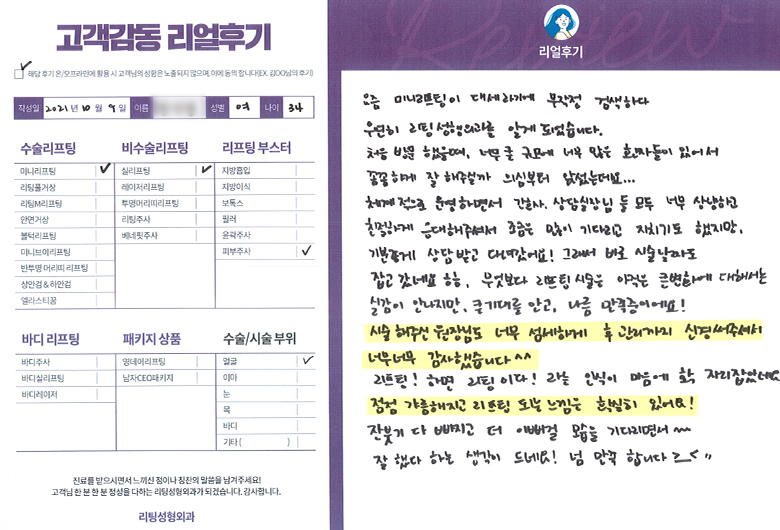 고객감동 리얼후기
해당 후기 온/오프라인에 활용 시 고객님의 성함은 노출되지 않으며, 이에 동의 합니다(EX. 김OO님의 후기)
작성일 2021년 10월 9일 이름 성별 여 나이 34
수술리프팅 비수술리프팅 리프팅 부스터
미니리프팅 실리프팅 지방흡입
리팅풀거상 레이저리프팅 지방이식
리팅M리프팅 투명머리띠리프팅 보톡스
안면거상 리팅주사 필러
볼턱리프팅 베네핏주사 윤곽주사
미니브이리프팅 피부주사
반투명 머리띠 리프팅
상안검 & 하안검
엘라스티꿈
바디 리프팅 패키지 상품 수술/시술 부위
바디주사 영네이리프팅 얼굴
바디실리프팅 남자CEO패키지 이마
바디레이저 눈
목
바디
기타 ( )
진료를 받으시면서 느끼신 점이나 칭찬의 말씀을 남겨주세요!
고객님 한 분 한 분 정성을 다하는 리팅성형외과가 되겠습니다. 감사합니다.
리팅성형외과
Review
리얼후기
요즘 미니리프팅이 대세라기에 무작정 검색하다
우연히 리팅성형외과를 알게 되었습니다.
처음 방문 했을때, 너무 큰 규모에 너무 많은 환자들이 있어서
꼼꼼하게 잘 해주실까 의심부터 앞섰는데요...
체계적으로 운영하면서 간호사, 상담실장님 등 모두 너무 상냥하고
친절하게 응대해주셔서 조금은 많이 기다리고 지치기도 했지만,
기분좋게 상담 받고 대녀갔어요! 그래서 바로 시술날짜도
잡고 갔네요 하하, 무엇보다 리프팅시술은 아직은 큰변화에 대해서는
실감이 안나지만, 큰기대를 안고, 나름 만족중이에요!
시술 해주신 원장님도 너무 섬세하게 후 관리까지 신경써주셔서
너무너무 감사했습니다^^
리프팅! 하면 리팅이다! 라는 인식이 마음에 확 자리잡았네요
점점 갸름해지고 리프팅 되는 느낌은 확실히 있어요!
잔붓기 다 빠지고 더 예뻐질 모습을 기다리면서~~
잘 했다 하는 생각이 드네요! 넘 만족 합니다>_<"